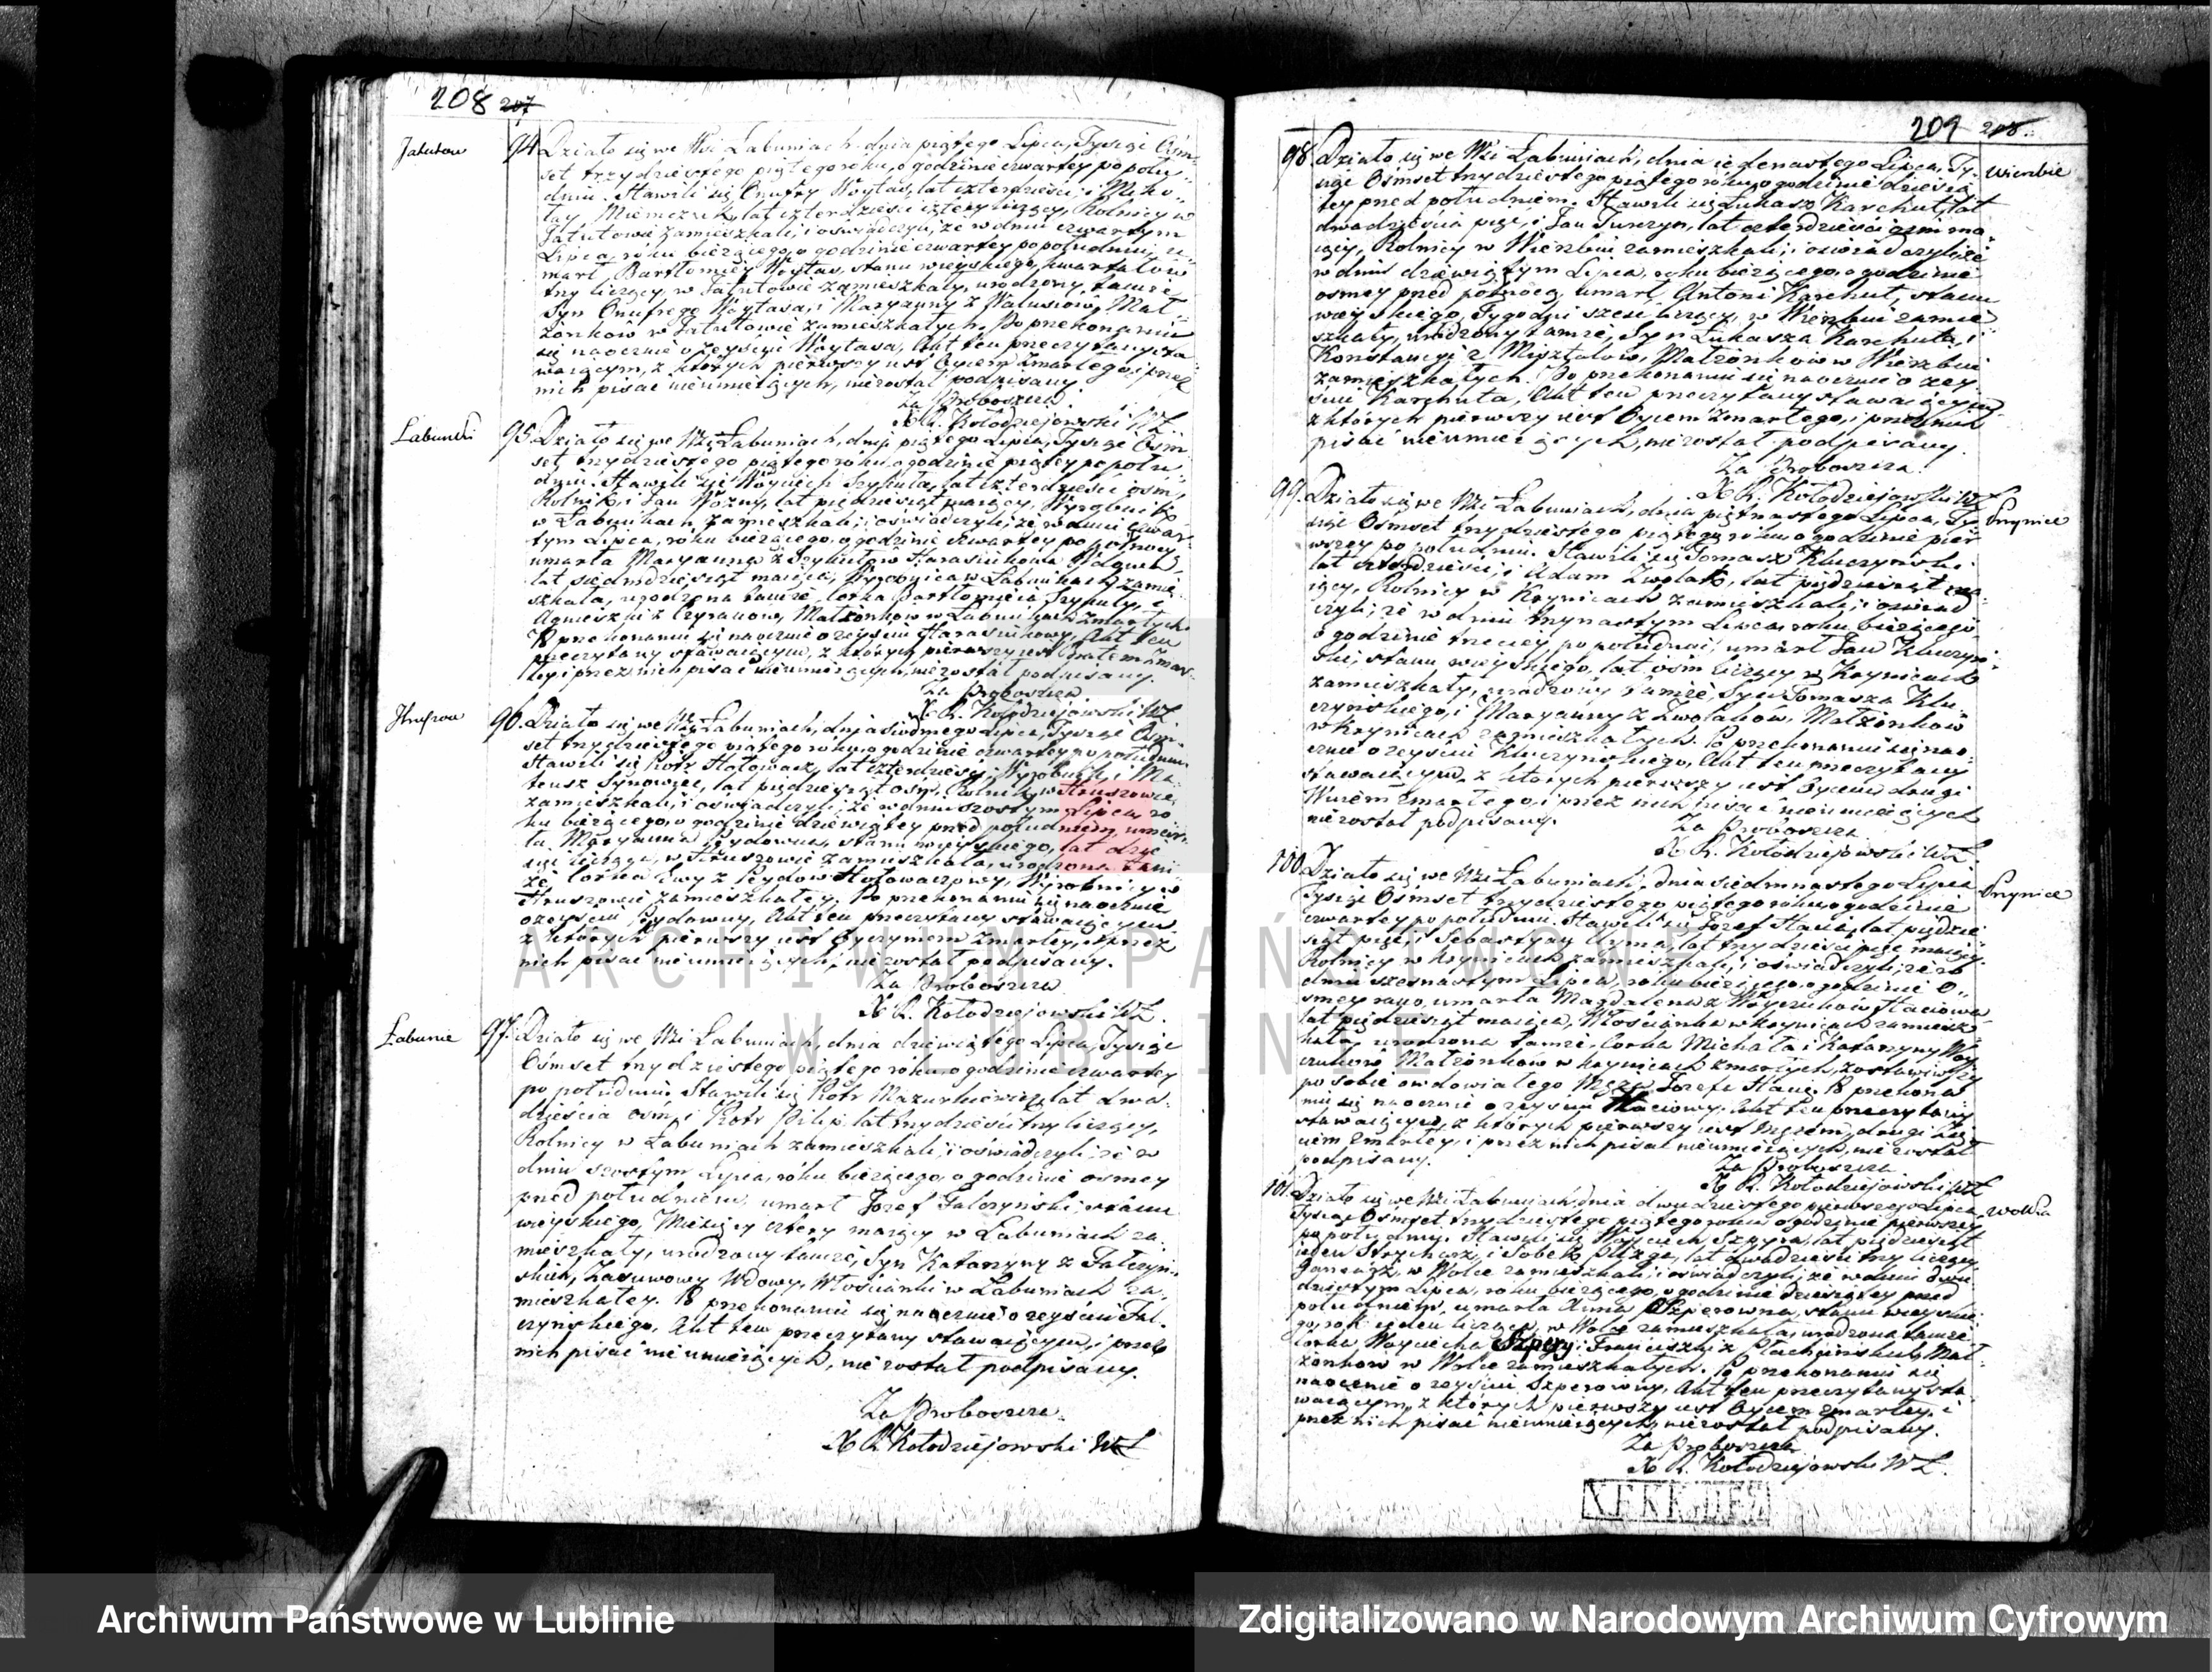 208 207
Jatutow
94. Działo się we Wsi Łabuniach dnia piątego Lipca, Tysiąc Ośm-
set trzydziestego piątego roku, o godzinie czwartey po połu-
dniu. Stawili się Onufry Woytas, lat czterdzieści, i Miko-
łay Niemczuk, lat czterdzieści cztery liczący, Rolnicy w
Jatutowie zamieszkali, i oświadczyli, że w dniu czwartym
Lipca, roku bieżącego, o godzinie czwartey po południu, u-
marł Bartłomiey Woytas, stanu wieyskiego, kwartałów
trzy liczący, w Jatutowie zamieszkały, urodzony tamże,
Syn Onufrego Woytasa, i Maryanny z Walusiów, Mał-
żonków w Jatutowie zamieszkałych. Po przekonaniu
się naocznie o zeyściu Woytasa, Akt ten przeczytany sta-
waiącym, z których pierwszy iest Oycem Zmarłego, i przez
nich pisać nieumieiących, niezostał podpisany.
Za Proboszcza
X R. Kołodziejowski WŁ
Łabuńki
95. Działo się we Wsi Łabuniach, dnia piątego Lipca, Tysiąc Ośm-
set trzydziestego piątego roku o godzinie piątey po połu-
dniu. Stawili się Woyciech Szykuła, lat czterdzieści ośm,
Rolnik, i Jan Woźny, lat pięćdziesiąt maiący, Wyrobnik
w Łabuńkach zamieszkali, i oświadczyli, że w dniu czwar-
tym Lipca, roku bieżącego, o godzinie czwartey po północy
umarła Maryanna z Szykułów Harasiukowa Wdowa,
lat siedmdziesiąt maiąca, Wyrobnica w Łabuńkach zamie-
szkała, urodzona tamże, Corka Bartłomieia Szykuły, i
Agnieszki z Cyranów, Małżonków w Łabuńkach zmarłych.
Po przekonaniu się naocznie o zeyściu Harasiukowy, Akt ten
przeczytany stawaiącym, z których pierwszy iest bratem Zmar-
łey i przez nich pisać nieumieiących, niezostał podpisany.
Za Proboszcza
X R. Kołodziejowski WŁ
96. Działo się we Wsi Łabuniach, dnia siódmego Lipca, Tysiąc Ośm-
set trzydziestego piątego roku, o godzinie czwartey po południu
Stawili się Piotr Hołowacz, lat czterdzieści, Wyrobnik, i Ma-
teusz Synowiec, lat pięćdziesiąt ośm, Rolnik, w Hruszowie
zamieszkali, i oświadczyli, że w dniu szostym Lipca, ro-
ku bieżącego, o godzinie dziewiątey przed południem, umar-
ła Maryanna Pyzdowna, stanu wieyskiego, lat
liczącа, w Hruszowie zamieszkała, urodzona tam-
że Corka Ewy z Hołowaczowy, Wyrobnicy w
Hruszowie zamieszkałey. Po przekonaniu się naocznie
o zeyściu Akt ten przeczytany stawaiącym
z których pierwszy iest Oyczymem Zmarłey, i przez
nich pisać nieumieiących, niezostał podpisany.
Za Proboszcza
X R. Kołodziejowski WŁ.
Łabunie
97. Działo się we Wsi Łabuniach, dnia dziewiątego Lipca, Tysiąc
Ośmset trzydziestego piątego roku o godzinie czwartey
po południu. Stawili się Piotr Mazurkiewicz, lat dwa-
dzieścia ośm, i Piotr Pilip, lat trzydzieści trzy liczący,
Rolnicy w Łabuniach zamieszkali, i oświadczyli, że w
dniu szostym Lipca, roku bieżącego, o godzinie osmey
przed południem, umarł Jozef Falczyński, stanu
wieyskiego, Miesięcy cztery maiący w Łabuniach za-
mieszkały, urodzony tamże, Syn Katarzyny z Falczyń-
skich, Wdowy, Włościanki w Łabuniach za-
mieszkałey. Po przekonaniu się naocznie o zeyściu Fal-
czyńskiego, Akt ten przeczytany stawaiącym, i przez
nich pisać nieumieiących, nie został podpisany.
Za Proboszcza
X R Kołodziejowski WŁ
209 208
98. Działo się we Wsi Łabuniach, dnia iedenastego Lipca, Ty-
Wierzbie
siąc Ośmset trzydziestego piątego roku, o godzinie dziesią-
tey przed południem. Stawili się Łukasz Karchut, lat
dwadzieścia pięć, i Jan Turczyn, lat czterdzieści ośm ma-
iący, Rolnicy w Wierzbiu zamieszkali, i oświadczyli, że
w dniu dziewiątym Lipca, roku bieżącego, o godzinie
osmey przed północą, umarł Antoni Karchut, stanu
wieyskiego, Tygodni sześć liczący, w Wierzbiu zamie-
szkały, urodzony tamże, Syn Łukasza Karchuta, i
Konstancyi z Misztalów, Małżonków w Wierzbiu
zamieszkałych. Po przekonaniu się naocznie o zey-
ściu Karchuta, Akt ten przeczytany stawaiącym,
z których pierwszy iest Oycem Zmarłego, i przez nich
pisać nieumieiących, niezostał podpisany.
Za Proboszcza.
X R. Kołodziejowski WŁ
99. Działo się we Wsi Łabuniach, dnia piętnastego Lipca, Ty-
Krynice
siąc Ośmset trzydziestego piątego roku o godzinie pier-
wszey po południu. Stawili się Tomasz Kluczyński
lat czterdzieści, i Adam Zwolak, lat pięćdziesiąt ma-
iący, Rolnicy w Krynicach zamieszkali, i oświad-
czyli, że w dniu trzynastym Lipca, roku bieżącego
o godzinie trzeciey po południu, umarł Jan Kluczyń-
ski, stanu wieyskiego, lat ośm liczący w Krynicach
zamieszkały, urodzony tamże, Syn Tomasza Klu-
czyńskiego, i Maryanny z Zwolaków, Małżonków
w Krynicach zamieszkałych. Po przekonaniu się nao-
cznie o zeyściu Kluczyńskiego, Akt ten przeczytany
stawaiącym, z których pierwszy iest Oycem drugi
Wuiem Zmarłego, i przez nich pisać nieumieiących
niezostał podpisany.
Za Proboszcza
X R. Kołodziejowski WŁ
100. Działo się we Wsi Łabuniach, dnia siedmnastego Lipca
Krynice
Tysiąc Ośmset trzydziestego piątego roku, o godzinie
czwartey po południu. Stawili się Jozef lat pięćdzie-
siąt pięć, i Sebastyan lat trzydzieści pięć maiący
Rolnicy w Krynicach zamieszkali, i oświadczyli, że w
dniu szesnastym Lipca, roku bieżącego, o godzinie o-
smey rano, umarła Magdalena z
lat pięćdziesiąt maiąca, Włościanka w Krynicach zamiesz-
kała, urodzona tamże, Corka Michała i Katarzyny
Małżonków w Krynicach zmarłych, zostawiwszy
po sobie owdowiałego Męża Jozefa Po przekona-
niu się naocznie o zeyściu Akt ten przeczytany
stawaiącym, z których pierwszy iest Mężem, drugi
Zmarłey, i przez nich pisać nieumieiących, nie został
podpisany.
Za Proboszcza
X R. Kołodziejowski WŁ
101. Działo się we Wsi Łabuniach, dnia dwudziestego pierwszego Lipca,
Wolka
Tysiąc Ośmset trzydziestego piątego roku o godzinie pierwszey
po południu. Stawili się Woyciech Szpyra, lat pięćdziesiąt
ieden Strycharz, i lat dwadzieścia trzy liczący,
Garncarz, w Wolce zamieszkali, i oświadczyli, że w dniu dwu-
dziestym Lipca, roku bieżącego, o godzinie dziesiątey przed
południem, umarła Anna Szperowna, stanu wieyskie-
go, rok ieden licząca, w Wolce zamieszkała, urodzona tamże
Corka Woyciecha Szpery, i Franciszki z Mał-
żonków w Wolce zamieszkałych. Po przekonaniu się
naocznie o zeyściu Szperowny, Akt ten przeczytany sta-
waiącym, z których pierwszy iest Oycem Zmarłey, i
przez nich pisać nieumieiących, niezostał podpisany.
Za Proboszcza
X R. Kołodziejowski WŁ.
ARCHIWUM PAŃSTWOWE
W LUBLINIE
Archiwum Państwowe w Lublinie
Zdigitalizowano w Narodowym Archiwum Cyfrowym